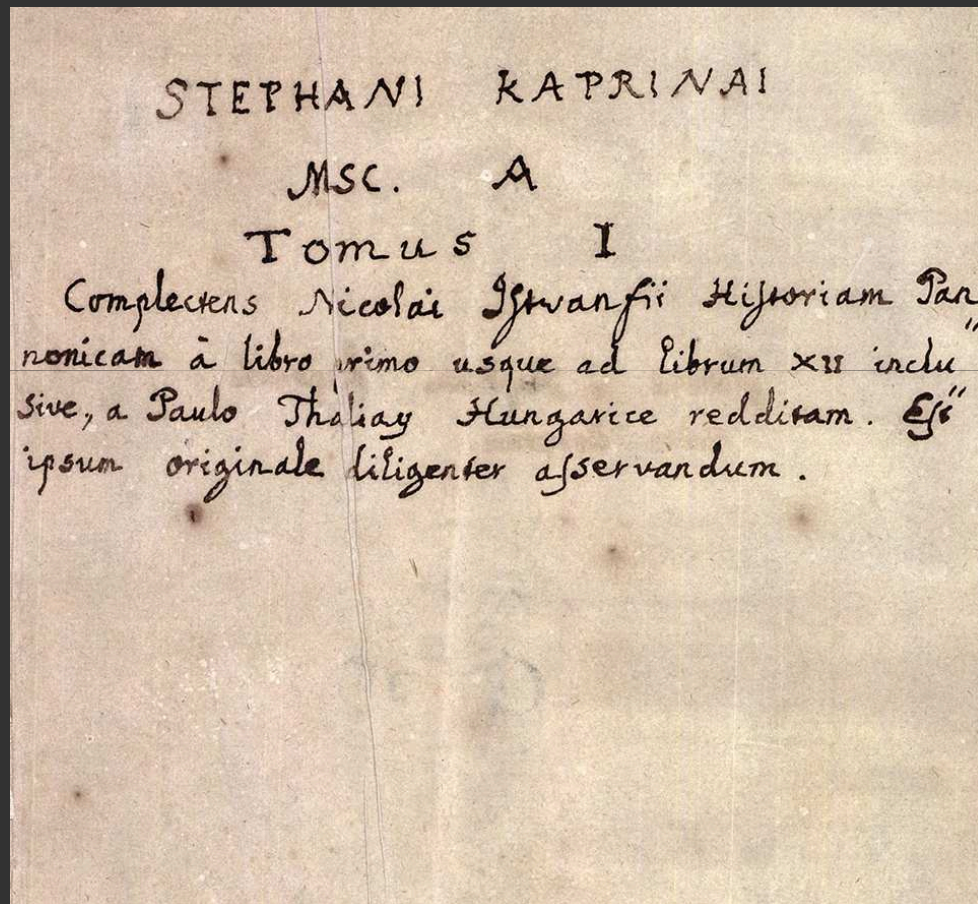 STEPHANI KAPRINAI
MSC. A
Tomus I
Complectens Nicolai Iſtvanfii Hiſtoriam Pan〃
nonicam à libro primo usque ad librum XII inclu〃
sive, a Paulo Thaliay Hungarice redditam. Eſt
ipsum originale diligenter aſservandum.